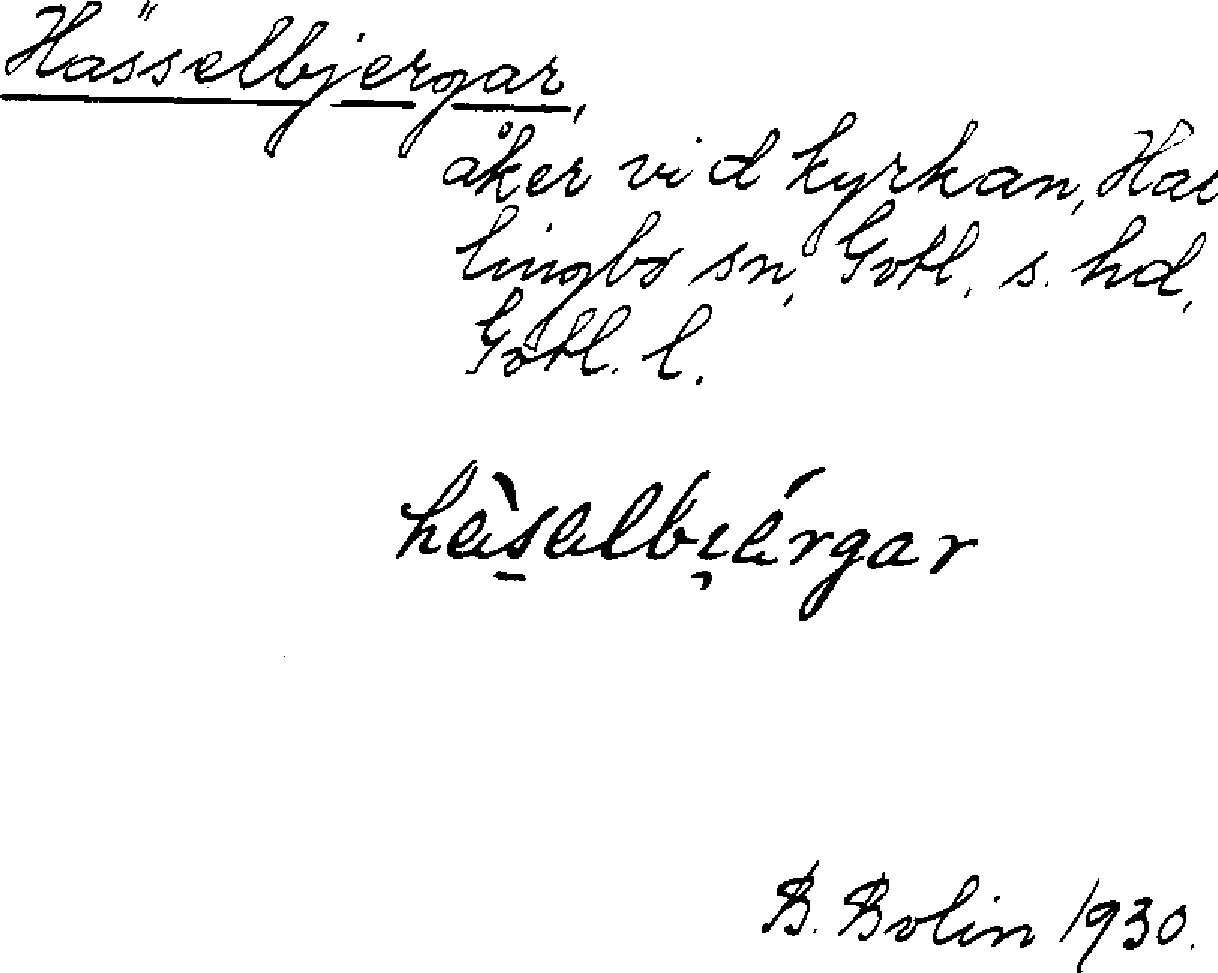 Hässelbjergar,
åker vid kyrkan, Hab
lingbo sn, Gotl. s. hd,
Gotl. l.
hæ̀sælbı̯ǽrgar
B. Bolin 1930.